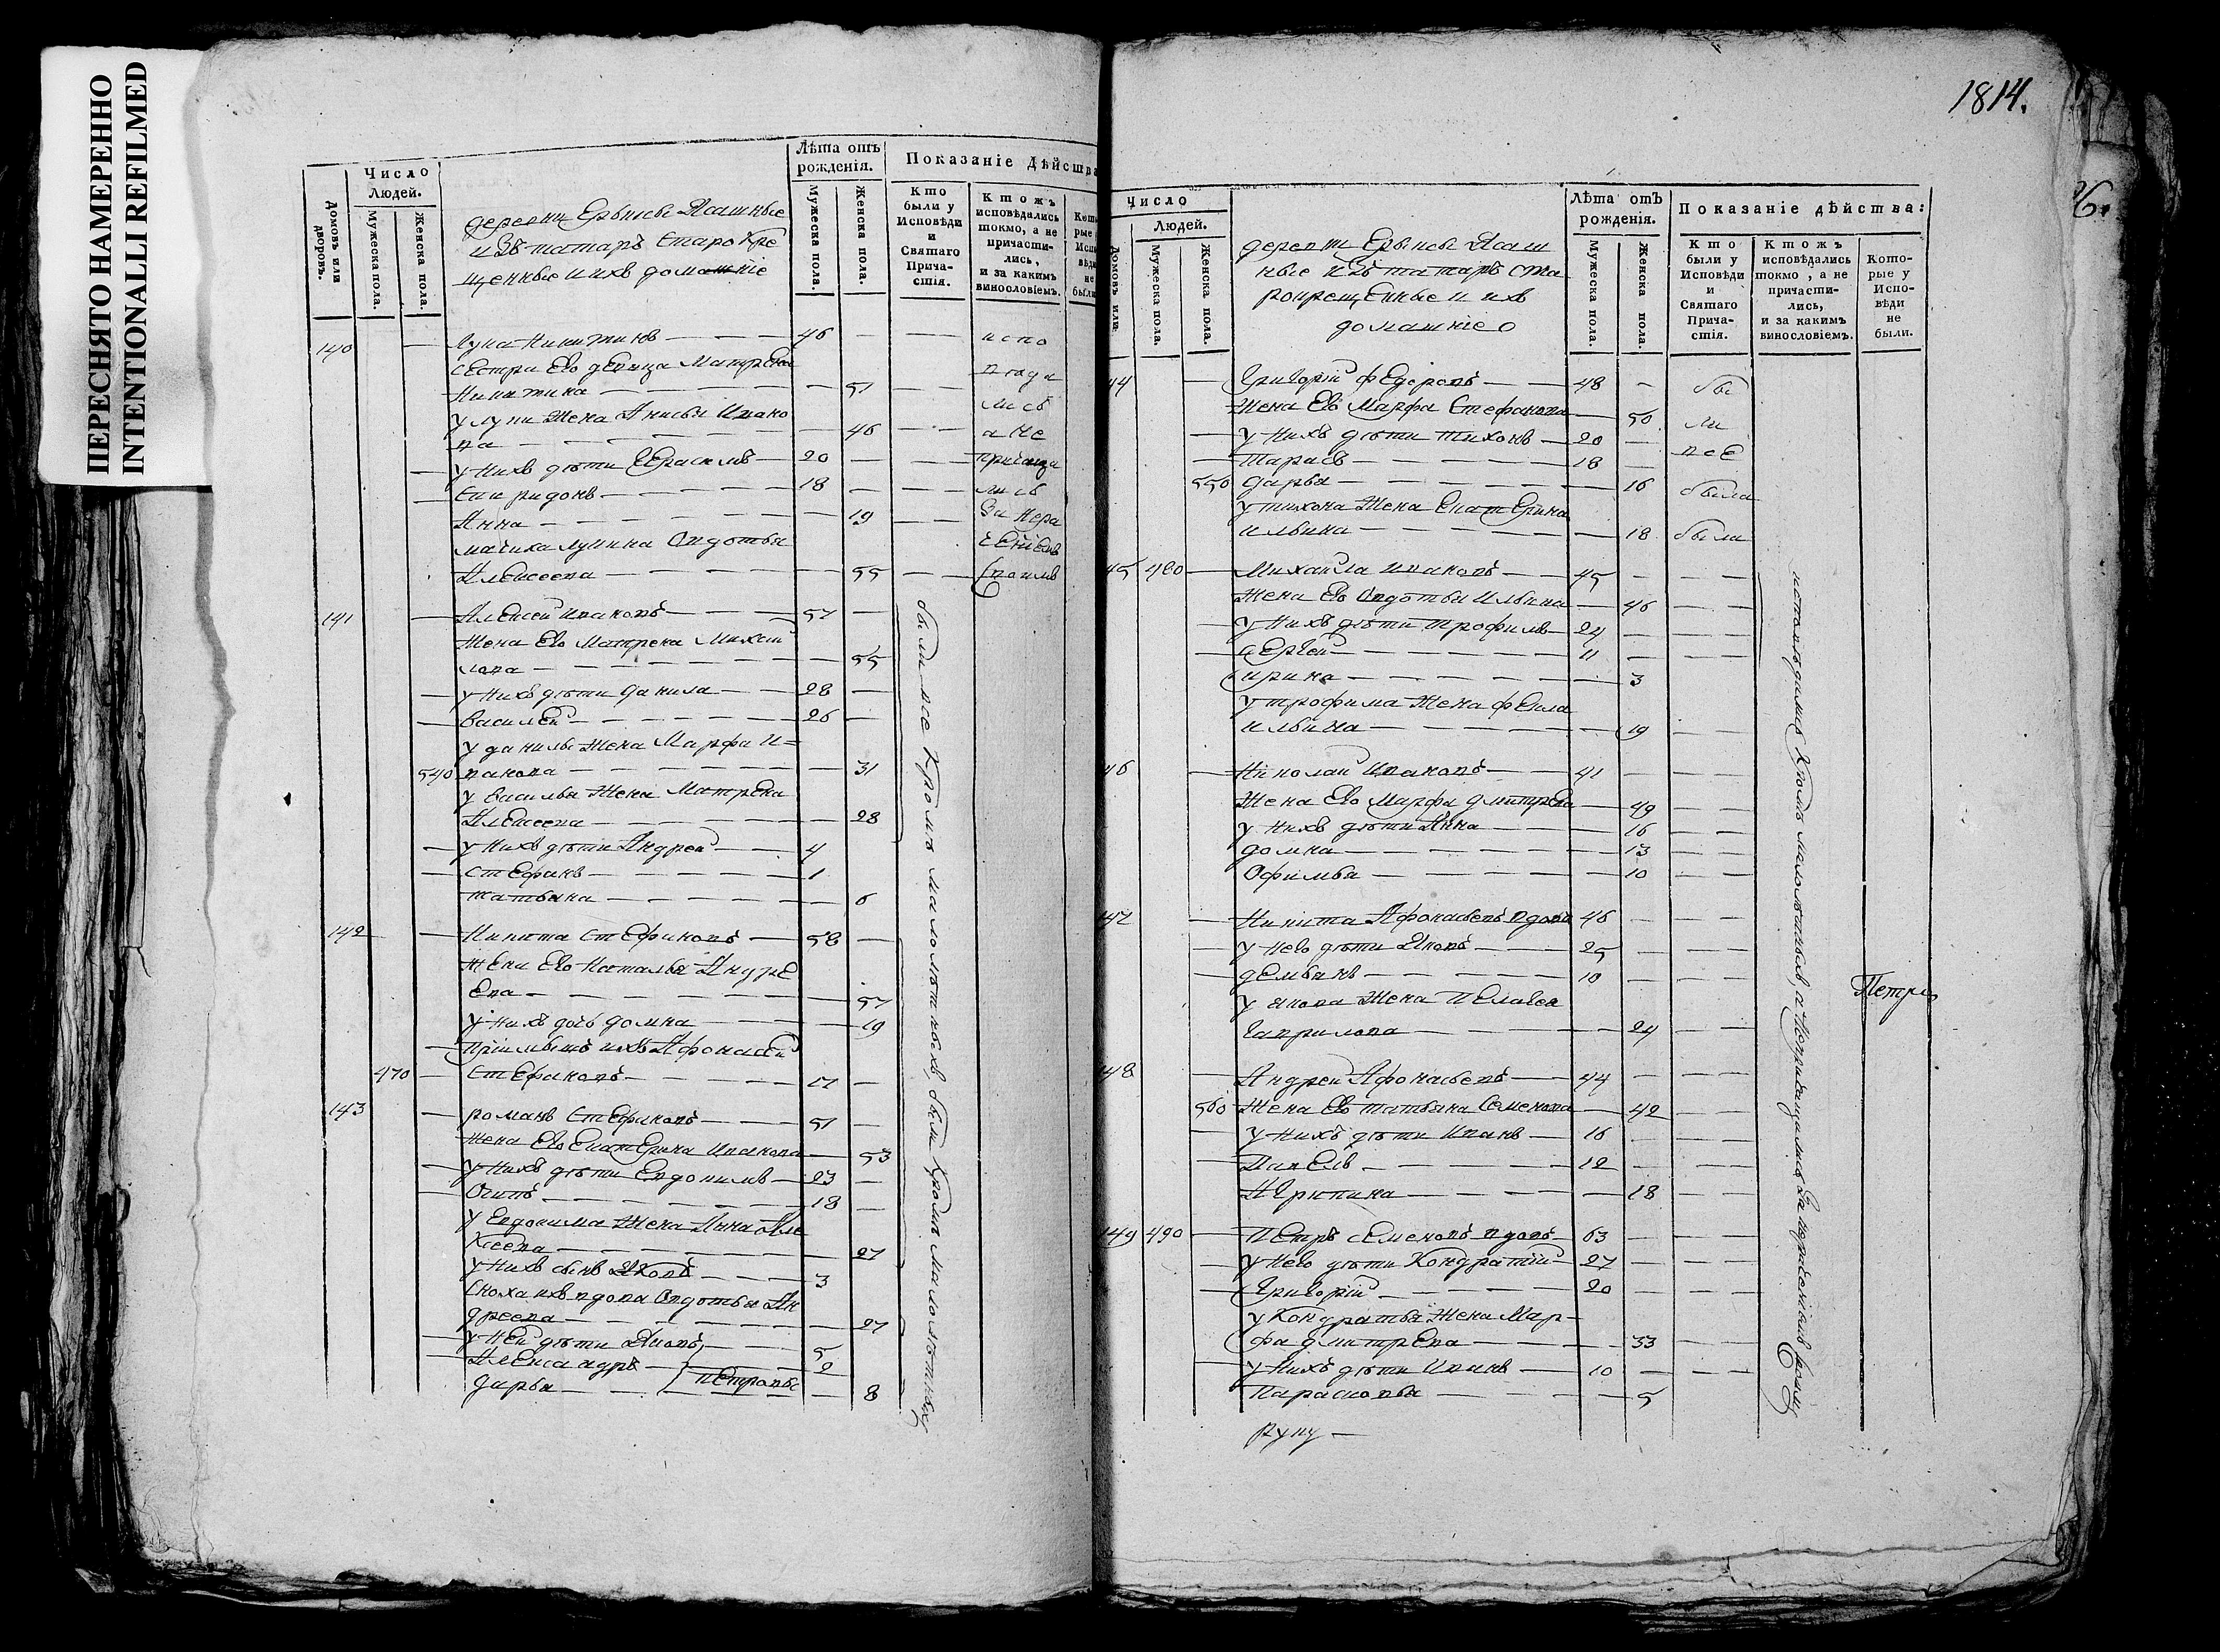 ПЕРЕСНЯТО НАМЕРЕННО
INTENTIONALLI REFILMED
Число
Людей.
Домовъ или дворовъ.
Мужеска пола.
Женска пола.
деревни Ерыксы Ясашные
изъ татаръ старокре
щенные и ихъ домашніе
Лѣта отъ
рожденія.
Мужеска пола.
Женска пола.
Показаніе Дѣйства
Кто
были у
Исповѣди
и
Святаго
Прича-
стія.
Ктожъ
исповѣдались
токмо, а не
причасти-
лись,
и за какимъ
винословіемъ.
140 Лука Никитинъ 46
Сестра Ево девица Матрена
Никитина 51
у луки Жена Анисья Ивано
ва 46
у Нихъ дѣти Герасимъ 20
Спиридонъ 18
Анна 19
мачиха лукина Овдотья
Алексеева 55
испо
веда
лись
а не
приоща
лись
За нера
ченіемъ
своимъ
141 Алексей Ивановъ 57
Жена Ево Матрена Михай
лова 55
у Нихъ дѣти данила 28
Василей 26
у данилы Жена Марфа И=
540 ванова 31
у Василья Жена Матрена
Алексеева 28
у Нихъ дѣти Андрей 4
Стефанъ 1
татьяна 6
142 Никита Стефановъ 58
Жена Ево Наталья Андре
Ева 57
у Нихъ дочь домна 19
пріимышъ ихъ Афонасей
470 Стефановъ 17
143 романъ Стефановъ 51
Жена Ево Екатерина Иванова 53
у Нихъ дѣти Евдокимъ 23
Осипъ 18
у Евдокима Жена Анна Але
ксеева 27
у Нихъ сынъ Яковъ 3
Сноха ихъ вдова Овдотья Ан
дреева 27
у Ней дѣти Яковъ 5
Александръ 2
Петровы
дарья 8
были все Кромѣ малолѣтныхъ, были Кромѣ малолѣтныхъ
1814.
Число
Людей.
Домовъ или
Мужеска пола.
Женска пола.
деревни Ерыксы Ясаш
ные изъ татаръ ста
рокрещенные и ихъ
домашніе
Лѣта отъ
рожденія.
Мужеска пола.
Женска пола.
Показаніе дѣйства:
Кто
были у
Исповѣди
и
Святаго
Прича-
стія.
Ктожъ
исповѣдались
токмо, а не
причасти-
лись,
и за какимъ
винословіемъ.
Кото-
рые у
Испо-
вѣди
не
были.
44 Григорій Федоровъ 48 бы
Жена Ево Марфа Стефанова 50 ли
у Нихъ дѣти тихонъ 20 все
Тарасъ 18
550 дарья 16 была
у тихона Жена Екатерина
ильина 18 была
45 480 Михайла Ивановъ 45
Жена Ево Овдотья Ильина 46
у Нихъ дѣти трофимъ 24
Сергей 11
Ирина 3
у трофима Жена фекла
ильина 19
46 Николай Ивановъ 41
Жена Ево Марфа дмитрева 49
у Нихъ дѣти Анна 16
домна 13
Офимья 10
47 Никита Афонасьевъ вдовъ 46
у Нево дѣти Яковъ 25
демьянъ 10
у якова Жена Пелагея
Гаврилова 24
48 Андрей Афонасьевъ 44
560 Жена Ево татьяна Семенова 42
у Нихъ дѣти Иванъ 16
Павелъ 12
Агрипина 18
149 490 Петръ Семеновъ вдовъ 63
у Нево дѣти Кондратій 27
Григорій 20
у Кондратья Жена Мар-
фа дмитрева 33
у Нихъ дѣти Иванъ 10
Парасковья 5
руку
исповѣдались Кромѣ малолѣтныхъ, а неприобщились За нераченіемъ своимъ
Петръ